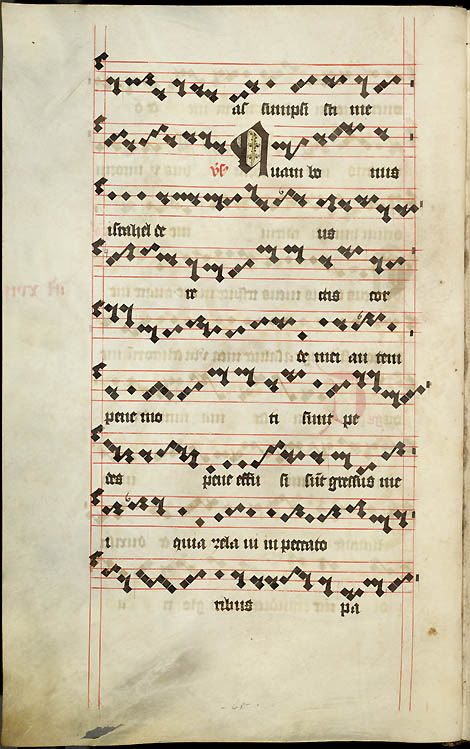 as sumpsi sti me
vs Quam bo nus
israhel de us
re ctis cor
de mei autem
pene mo ti sunt pe
des pene effu si sūt gressus me
i quia zela ui in peccato
ribus pa